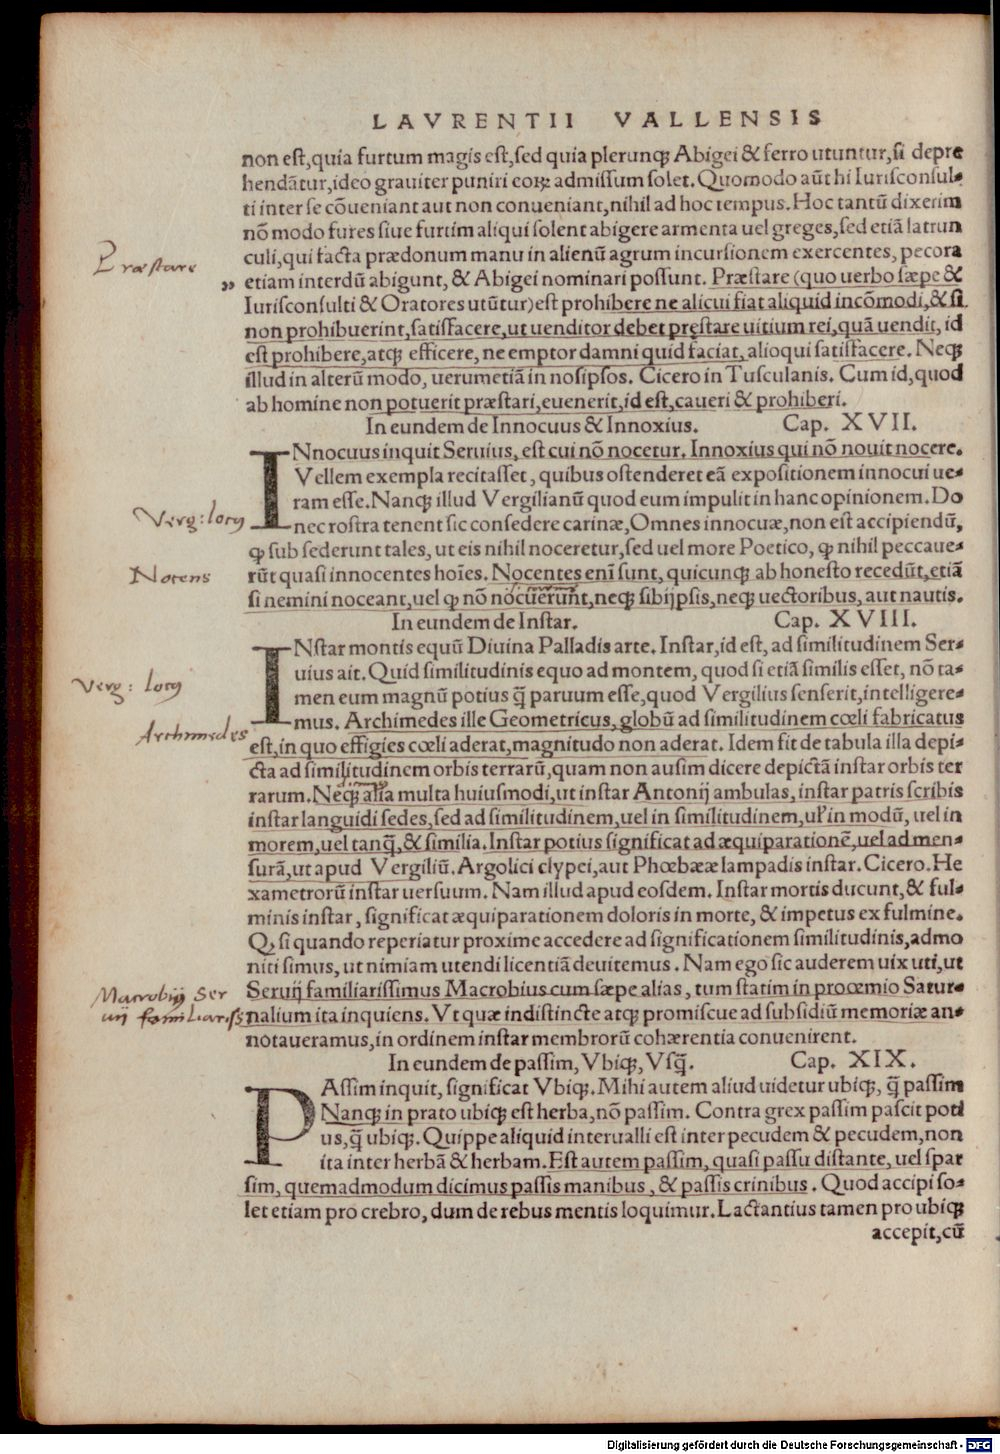 LAVRENTII VALLENSIS
non est,quia furtum magis est,sed quia plerunqꝫ Abigei & ferro utuntur,si depre
hendãtur,ideo grauiter puniri eoꝝ admissum solet.Quomodo aũt hi Iurisconsul-
ti inter se cõueniant aut non conueniant,nihil ad hoc tempus.Hoc tantũ dixerim
nõ modo fures siue furtim aliqui solent abigere armenta uel greges,sed etiã latrun
culi,qui facta prædonum manu in alienũ agrum incursionem exercentes, pecora
Præstare
„ etiam interdũ abigunt, & Abigei nominari possunt. Præstare (quo uerbo sæpe &
Iurisconsulti & Oratores utũtur) est prohibere ne alicui fiat aliquid incõmodi,& si
non prohibuerint,satisfacere,ut uenditor debet pręstare uitium rei,quã uendit, id
est prohibere,atqꝫ efficere, ne emptor damni quid faciat, alioqui satisfacere. Neqꝫ
illud in alterũ modo, uerumetiã in nosipsos. Cicero in Tusculanis. Cum id,quod
ab homine non potuerit præstari,euenerit,id est,caueri & prohiberi.
In eundem de Innocuus & Innoxius. Cap. XVII.
INnocuus inquit Seruius, est cui nõ nocetur. Innoxius qui nõ nouit nocere.
Vellem exempla recitasset, quibus ostenderet eã expositionem innocui ue-
ram esse.Nanqꝫ illud Vergilianũ quod eum impulit in hanc opinionem.Do
Verg: locꝰ
nec rostra tenent sic consedere carinæ,Omnes innocuæ,non est accipiendũ,
ꝙ sub sederunt tales, ut eis nihil noceretur,sed uel more Poetico, ꝙ nihil peccaue-
Nocens
rũt quasi innocentes hoĩes. Nocentes enĩ sunt, quicunqꝫ ab honesto recedũt,etiã
si nemini noceant,uel ꝙ nõ nocuerunt,neqꝫ sibijpsis,neqꝫ uectoribus, aut nautis.
In eundem de Instar. Cap. XVIII.
INstar montis equũ Diuina Palladis arte. Instar,id est, ad similitudinem Ser-
uius ait. Quid similitudinis equo ad montem, quod si etiã similis esset, nõ ta-
Verg: locꝰ
men eum magnũ potius q̃ paruum esse,quod Vergilius senserit,intelligere-
mus. Archimedes ille Geometricus, globũ ad similitudinem cœli fabricatus
Archimedes
est,in quo effigies cœli aderat,magnitudo non aderat. Idem fit de tabula illa depi-
cta ad similitudinem orbis terrarũ,quam non ausim dicere depictã instar orbis ter
rarum.Neqꝫ alia multa huiusmodi,ut instar Antonij ambulas, instar patris scribis
instar languidi sedes,sed ad similitudinem,uel in similitudinem,uł in modũ, uel in
morem,uel tanq̃,& similia.Instar potius significat ad æquiparationẽ,uel ad men-
surã,ut apud Vergiliũ. Argolici clypei,aut Phœbææ lampadis instar.Cicero.He
xametrorũ instar uersuum. Nam illud apud eosdem. Instar mortis ducunt,& ful-
minis instar, significat æquiparationem doloris in morte, & impetus ex fulmine.
Q, si quando reperiatur proxime accedere ad significationem similitudinis,admo
niti simus, ut nimiam utendi licentiã deuitemus. Nam ego sic auderem uix uti,ut
Macrobiꝰ Ser
Seruij familiarissimus Macrobius cum sæpe alias, tum statim in procœmio Satur-
uij familiariss
nalium ita inquiens. Vt quæ indistincte atqꝫ promiscue ad subsidiũ memoriæ an-
notaueramus,in ordinem instar membrorũ cohærentia conuenirent.
In eundem de passim, Vbiqꝫ, Vsq̃. Cap. XIX.
PAssim inquit, significat Vbiqꝫ. Mihi autem aliud uidetur ubiqꝫ, q̃ passim
Nanqꝫ in prato ubiqꝫ est herba,nõ passim. Contra grex passim pascit poti
us,q̃ ubiqꝫ. Quippe aliquid interualli est inter pecudem & pecudem,non
ita inter herbã & herbam.Est autem passim, quasi passu distante, uel spar
sim, quemadmodum dicimus passis manibus, & passis crinibus. Quod accipi so-
let etiam pro crebro, dum de rebus mentis loquimur. Lactantius tamen pro ubiqꝫ
accepit,cũ
Digitalisierung gefördert durch die Deutsche Forschungsgemeinschaft - DFG